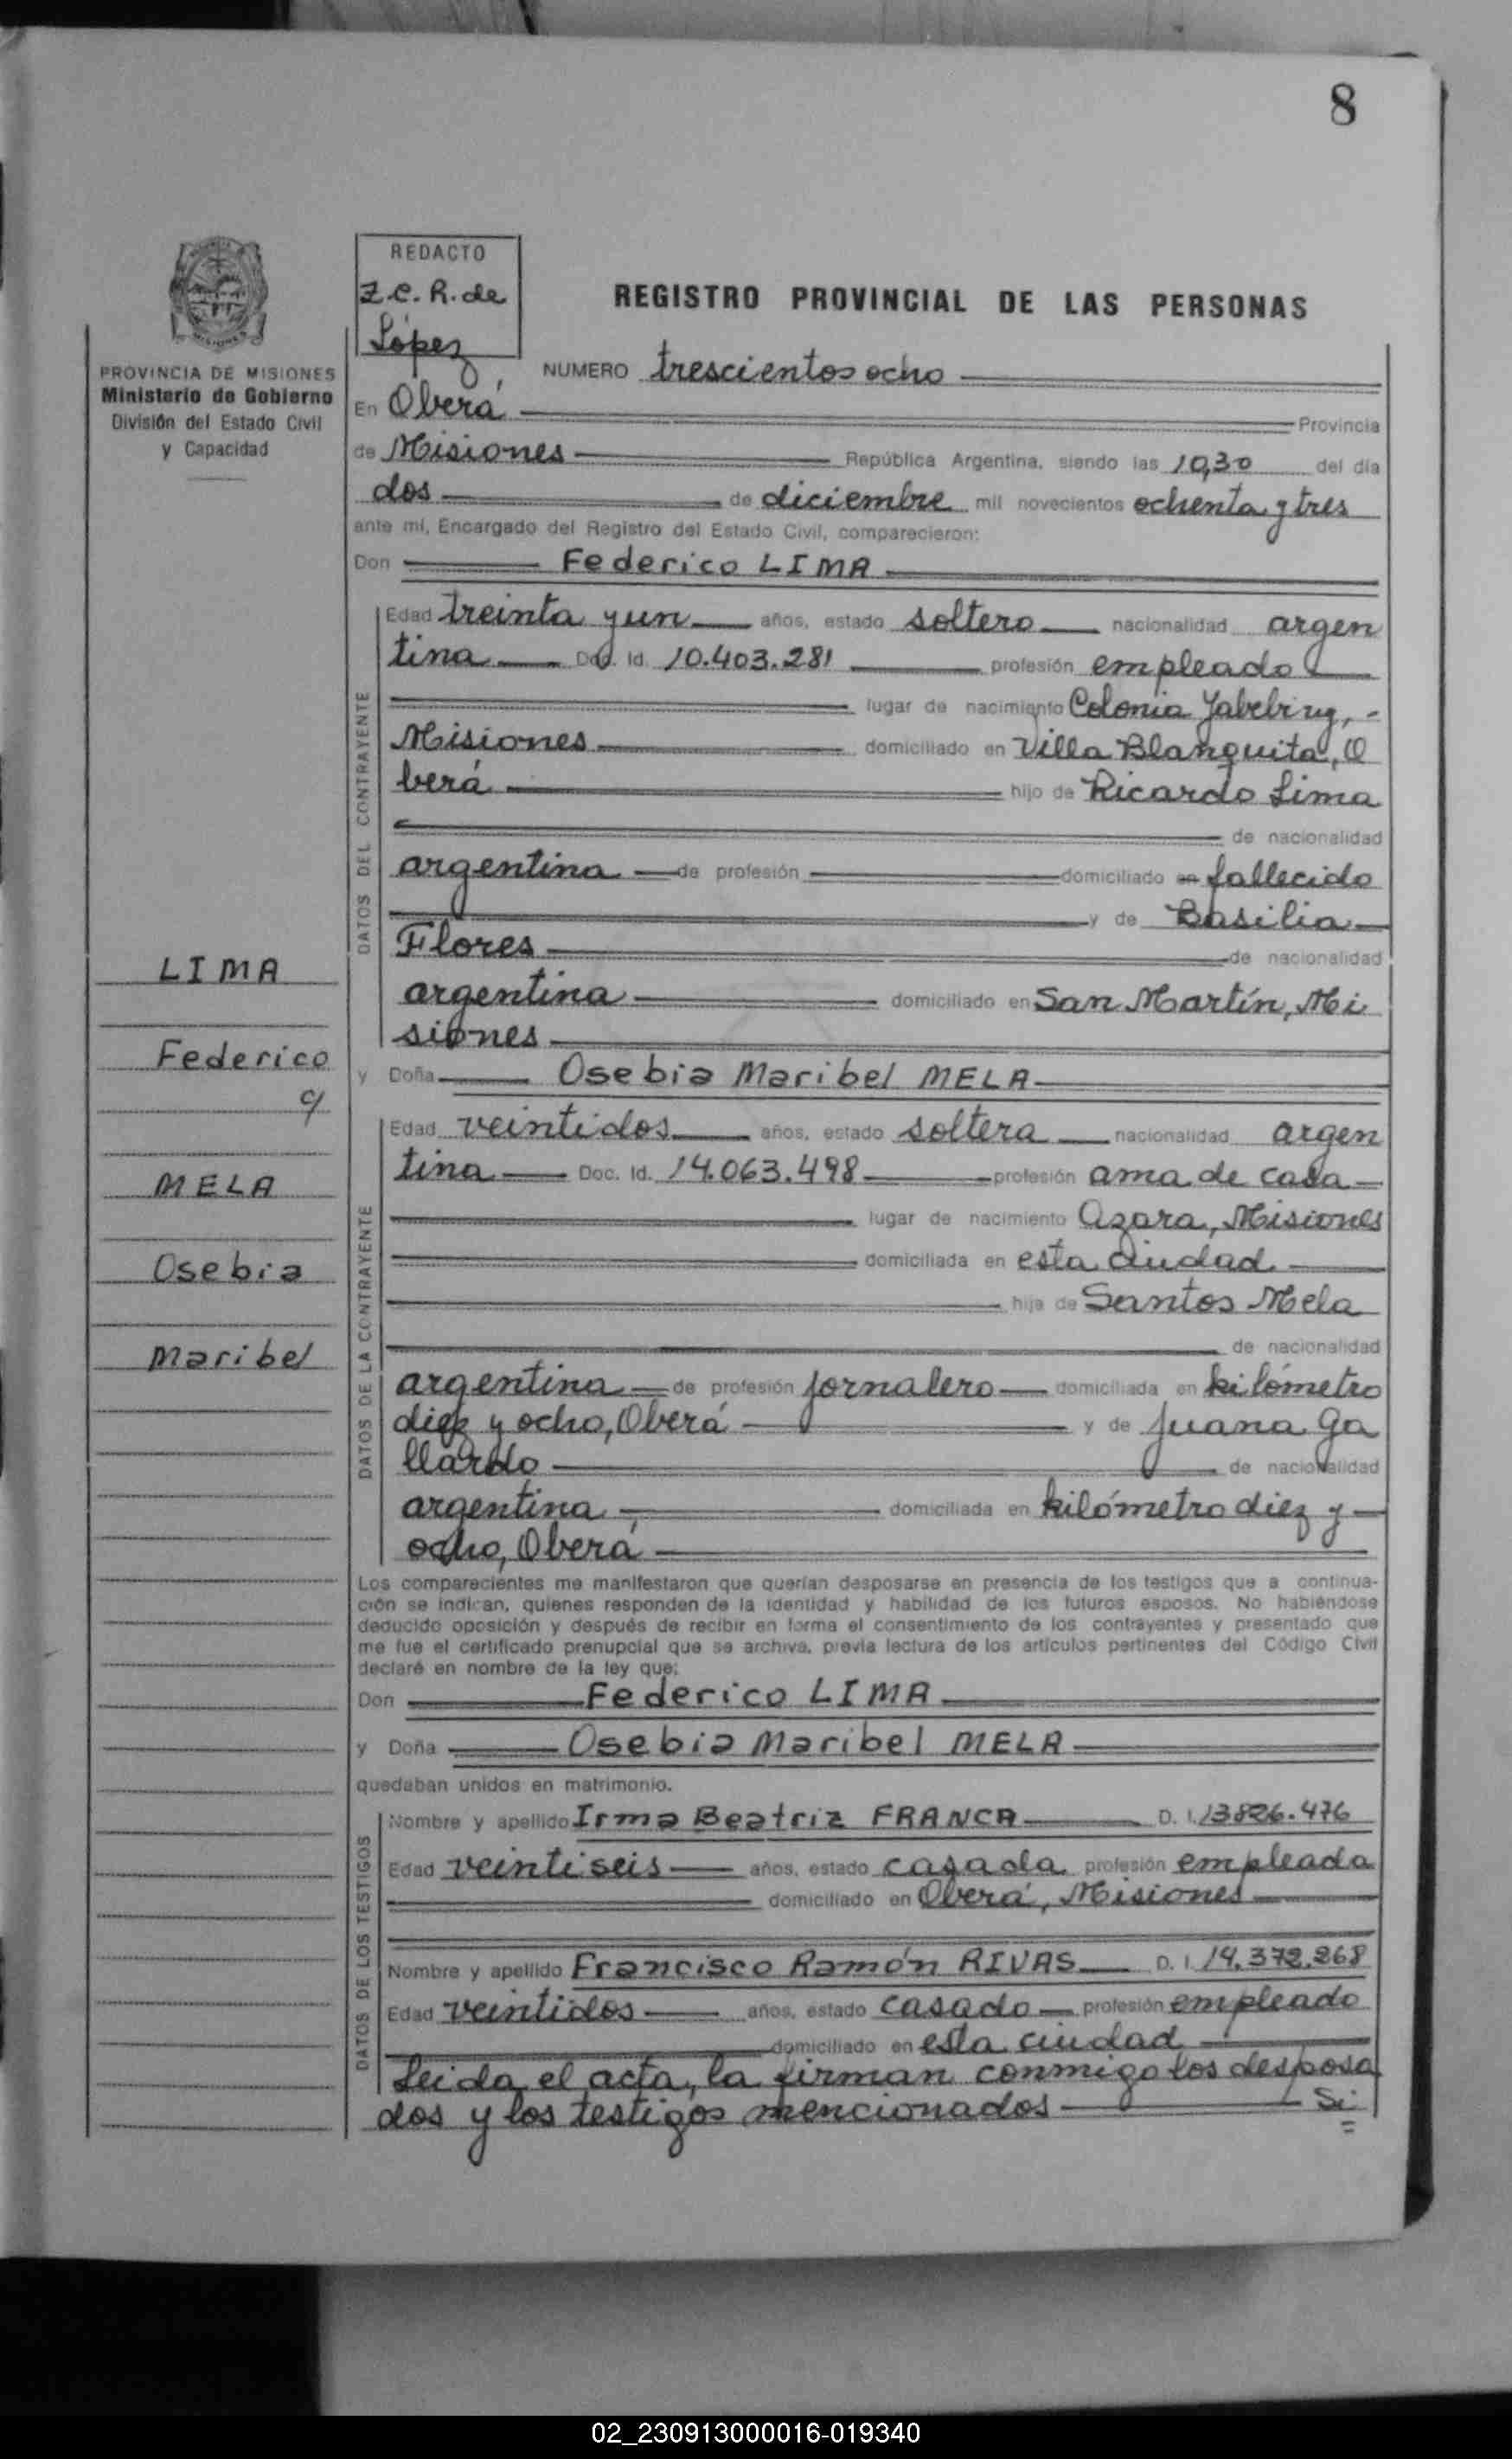 8
REDACTO
Z.C.R. de
López
REGISTRO PROVINCIAL DE LAS PERSONAS
PROVINCIA DE MISIONES
Ministerio de Gobierno
División del Estado Civil
y Capacidad
NUMERO trescientos ocho
En Oberá Provincia
de Misiones República Argentina, siendo las 10,30 del día
dos de diciembre mil novecientos ochenta y tres
ante mí, Encargado del Registro del Estado Civil, comparecieron:
Don Federico LIMA
DATOS DEL CONTRAYENTE
Edad treinta y un años, estado soltero nacionalidad argen
tina Doc. Id. 10.403.281 profesión empleado
lugar de nacimiento Colonia Yabebiry, -
Misiones domiciliado en Villa Blanquita, O
berá hijo de Ricardo Lima
de nacionalidad
argentina de profesión domiciliado en fallecido
y de Basilia
Flores de nacionalidad
argentina domiciliado en San Martín, Mi
siones
y Doña Osebia Maribel MELA
DATOS DE LA CONTRAYENTE
Edad veintidos años, estado soltera nacionalidad argen
tina Doc. Id. 14.063.498 profesión ama de casa
lugar de nacimiento Azara, Misiones
domiciliada en esta ciudad
hija de Santos Mela
de nacionalidad
argentina de profesión jornalero domiciliada en kilómetro
diez y ocho, Oberá y de Juana Ga
llardo de nacionalidad
argentina domiciliada en kilómetro diez y
ocho, Oberá
LIMA
Federico
c/
MELA
Osebia
Maribel
Los comparecientes me manifestaron que querían desposarse en presencia de los testigos que a continua-
ción se indican, quienes responden de la identidad y habilidad de los futuros esposos. No habiéndose
deducido oposición y después de recibir en forma el consentimiento de los contrayentes y presentado que
me fue el certificado prenupcial que se archiva, previa lectura de los artículos pertinentes del Código Civil
declaré en nombre de la ley que:
Don Federico LIMA
y Doña Osebia Maribel MELA
quedaban unidos en matrimonio.
DATOS DE LOS TESTIGOS
Nombre y apellido Irma Beatriz FRANCA D. I. 13826.476
Edad veintiseis años, estado casada profesión empleada
domiciliado en Oberá, Misiones
Nombre y apellido Francisco Ramón RIVAS D. I. 14.372.268
Edad veintidos años, estado casado profesión empleado
domiciliado en esta ciudad
Leida el acta, la firman conmigo los desposa
dos y los testigos mencionados Si
=
02_230913000016-019340